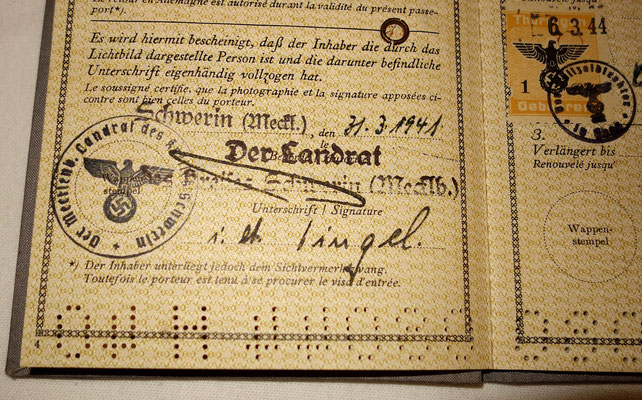 Le retour en Allemagne est autorisé durant la validité du présent passe-
port*).
Es wird hiermit bescheinigt, daß der Inhaber die durch das
Lichtbild dargestellte Person ist und die darunter befindliche
Unterschrift eigenhändig vollzogen hat.
Le soussigné certifie, que la photographie et la signature apposées ci-
contre sont bien celles du porteur.
Schwerin (Meckl.), den 31.3.1941
Der Landrat
des Kreises Schwerin (Mecklb.)
stempel
Unterschrift / Signature
i. A. Pingel.
*) Der Inhaber unterliegt jedoch dem Sichtvermerkzwang.
Toutefois le porteur est tenu à se procurer le visa d'entrée.
4
Der Mecklenb. Landrat des Kreises Schwerin
Renouvelé jusqu'
6.3.44
1
3.
Verlängert bis
Renouvelé jusqu'
Wappen-
stempel